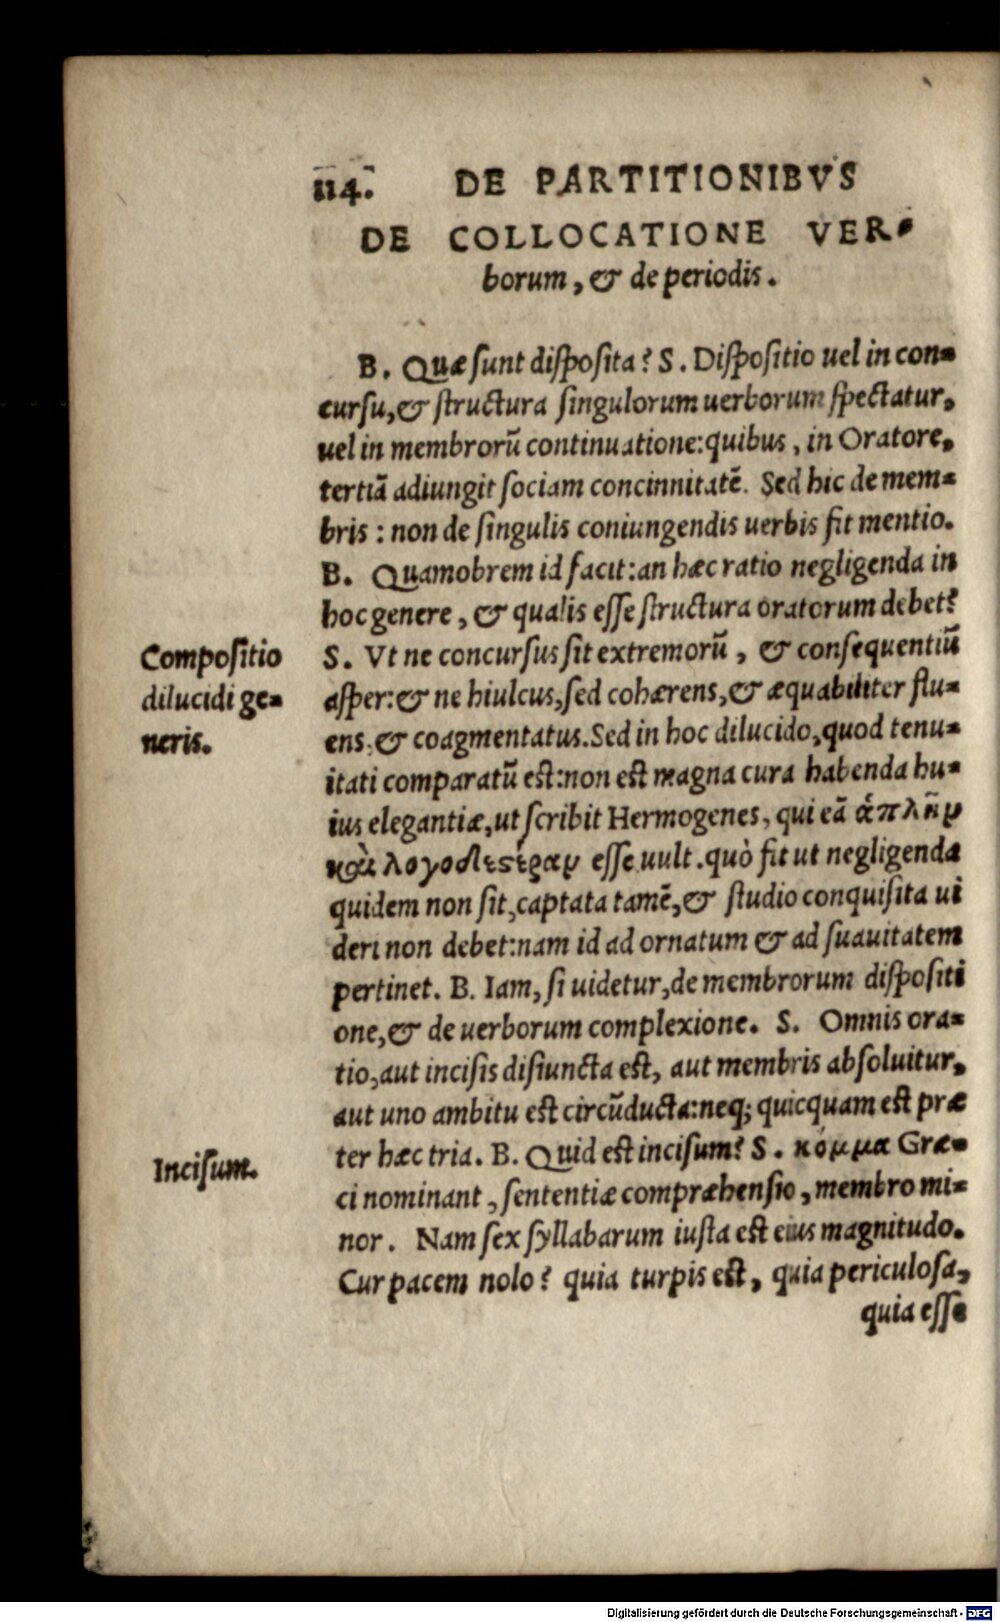 114. DE PARTITIONIBVS
DE COLLOCATIONE VER-
borum, & de periodis.
B. Quæ sunt disposita? S. Dispositio uel in con-
cursu, & structura singulorum uerborum spectatur,
uel in membrorū continuatione: quibus, in Oratore,
tertiā adiungit sociam concinnitatē. Sed hic de mem-
bris: non de singulis coniungendis uerbis fit mentio.
B. Quamobrem id facit: an hæc ratio negligenda in
hoc genere, & qualis esse structura oratorum debet?
Compositio
dilucidi ge-
neris.
S. Vt ne concursus sit extremorū, & consequentiū
asper: & ne hiulcus, sed cohærens, & æquabiliter flu-
ens: & coagmentatus. Sed in hoc dilucido, quod tenu-
itati comparatū est: non est magna cura habenda hu-
ius elegantiæ, ut scribit Hermogenes, qui eā ἁπλῆν
καὶ λογοδεστέραν esse uult. quò fit ut negligenda
quidem non sit, captata tamē, & studio conquisita ui
deri non debet: nam id ad ornatum & ad suauitatem
pertinet. B. Iam, si uidetur, de membrorum dispositi
one, & de uerborum complexione. S. Omnis ora-
tio, aut incisis disiuncta est, aut membris absoluitur,
aut uno ambitu est circūducta: neq; quicquam est præ
ter hæc tria. B. Quid est incisum? S. κόμμα Græ-
Incisum.
ci nominant, sententiæ compræhensio, membro mi-
nor. Nam sex syllabarum iusta est eius magnitudo.
Cur pacem nolo? quia turpis est, quia periculosa,
quia esse
Digitalisierung gefördert durch die Deutsche Forschungsgemeinschaft - DFG